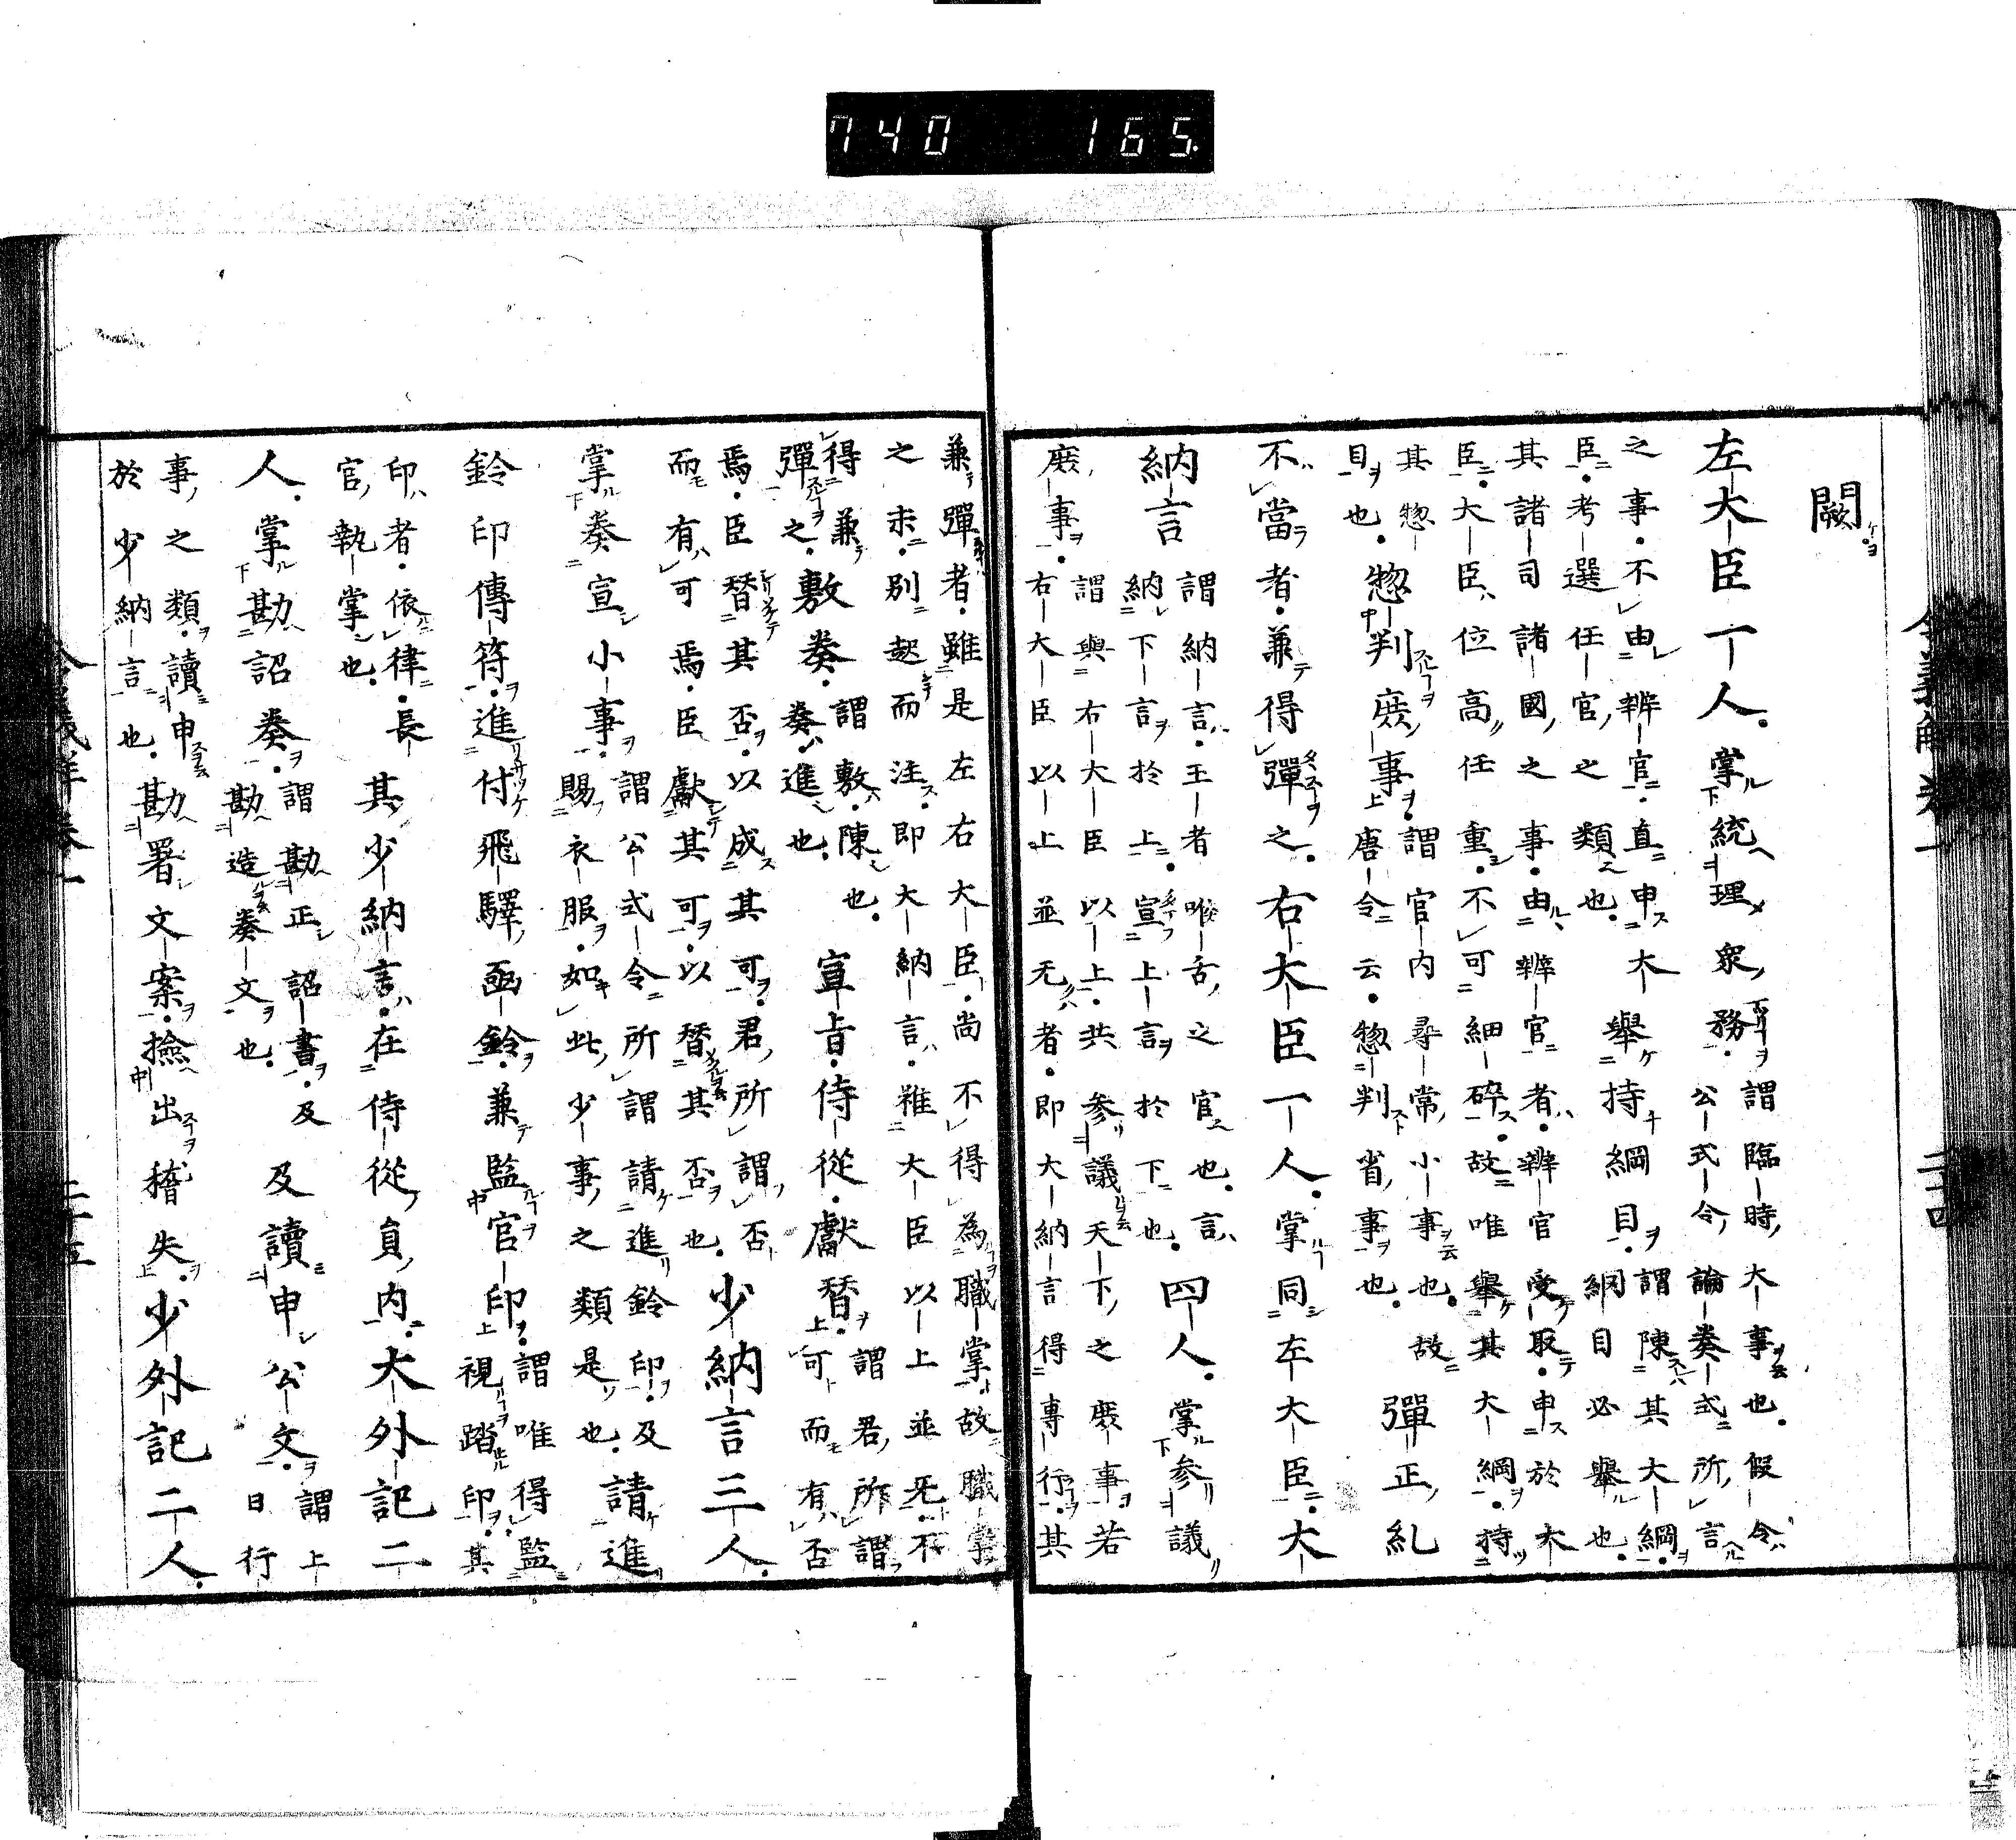 740 165
闕
左大臣一人。掌統理衆務。謂臨時大事也。假令公式令論奏式所言
之事。不由辨官。直申大
臣。考選任官之類也。擧持綱目。謂陳其大綱。綱目必擧也。
其諸司諸國之事。由辨官者。辨官受取。申於大
臣。大臣位高任重。不可細碎。故唯擧其大綱。持
其惣
目也。惣判庶事。謂官内尋常小事也。故唐令云。惣判省事也。彈正糺
不當者。兼得彈之。右大臣一人。掌同左大臣。大
納言謂納言。王者喉舌之官也。言納下言於上。宣上言於下也。四人。掌参議
庶事。謂與右大臣以上。共参議天下之庶事。若右大臣以上並无者。即大納言得專行。其
兼彈者。雖是左右大臣。尚不得為職掌。故職掌
之末。別起而注。即大納言。雖大臣以上並无。不
得兼
彈之。敷奏。謂敷。陳也。奏。進也。宣旨。侍從。獻替。謂君所謂可而有否
焉。臣替其否。以成其可。君所謂否
而有可焉。臣獻其可。以替其否也。少納言三人。
掌奏宣小事。謂公式令所謂請進鈴印。及賜衣服。如此少事之類是也。請進
鈴印傳符。進付飛驛凾鈴。兼監官印。謂唯得監視踏印。其
印者。依律。長
官執掌也。其少納言。在侍從員内。大外記二
人。掌勘詔奏。謂勘正詔書。及勘造奏文也。及讀申公文。謂上日行
事之類。讀申
於少納言也。勘署文案。撿出稽失。少外記二人。